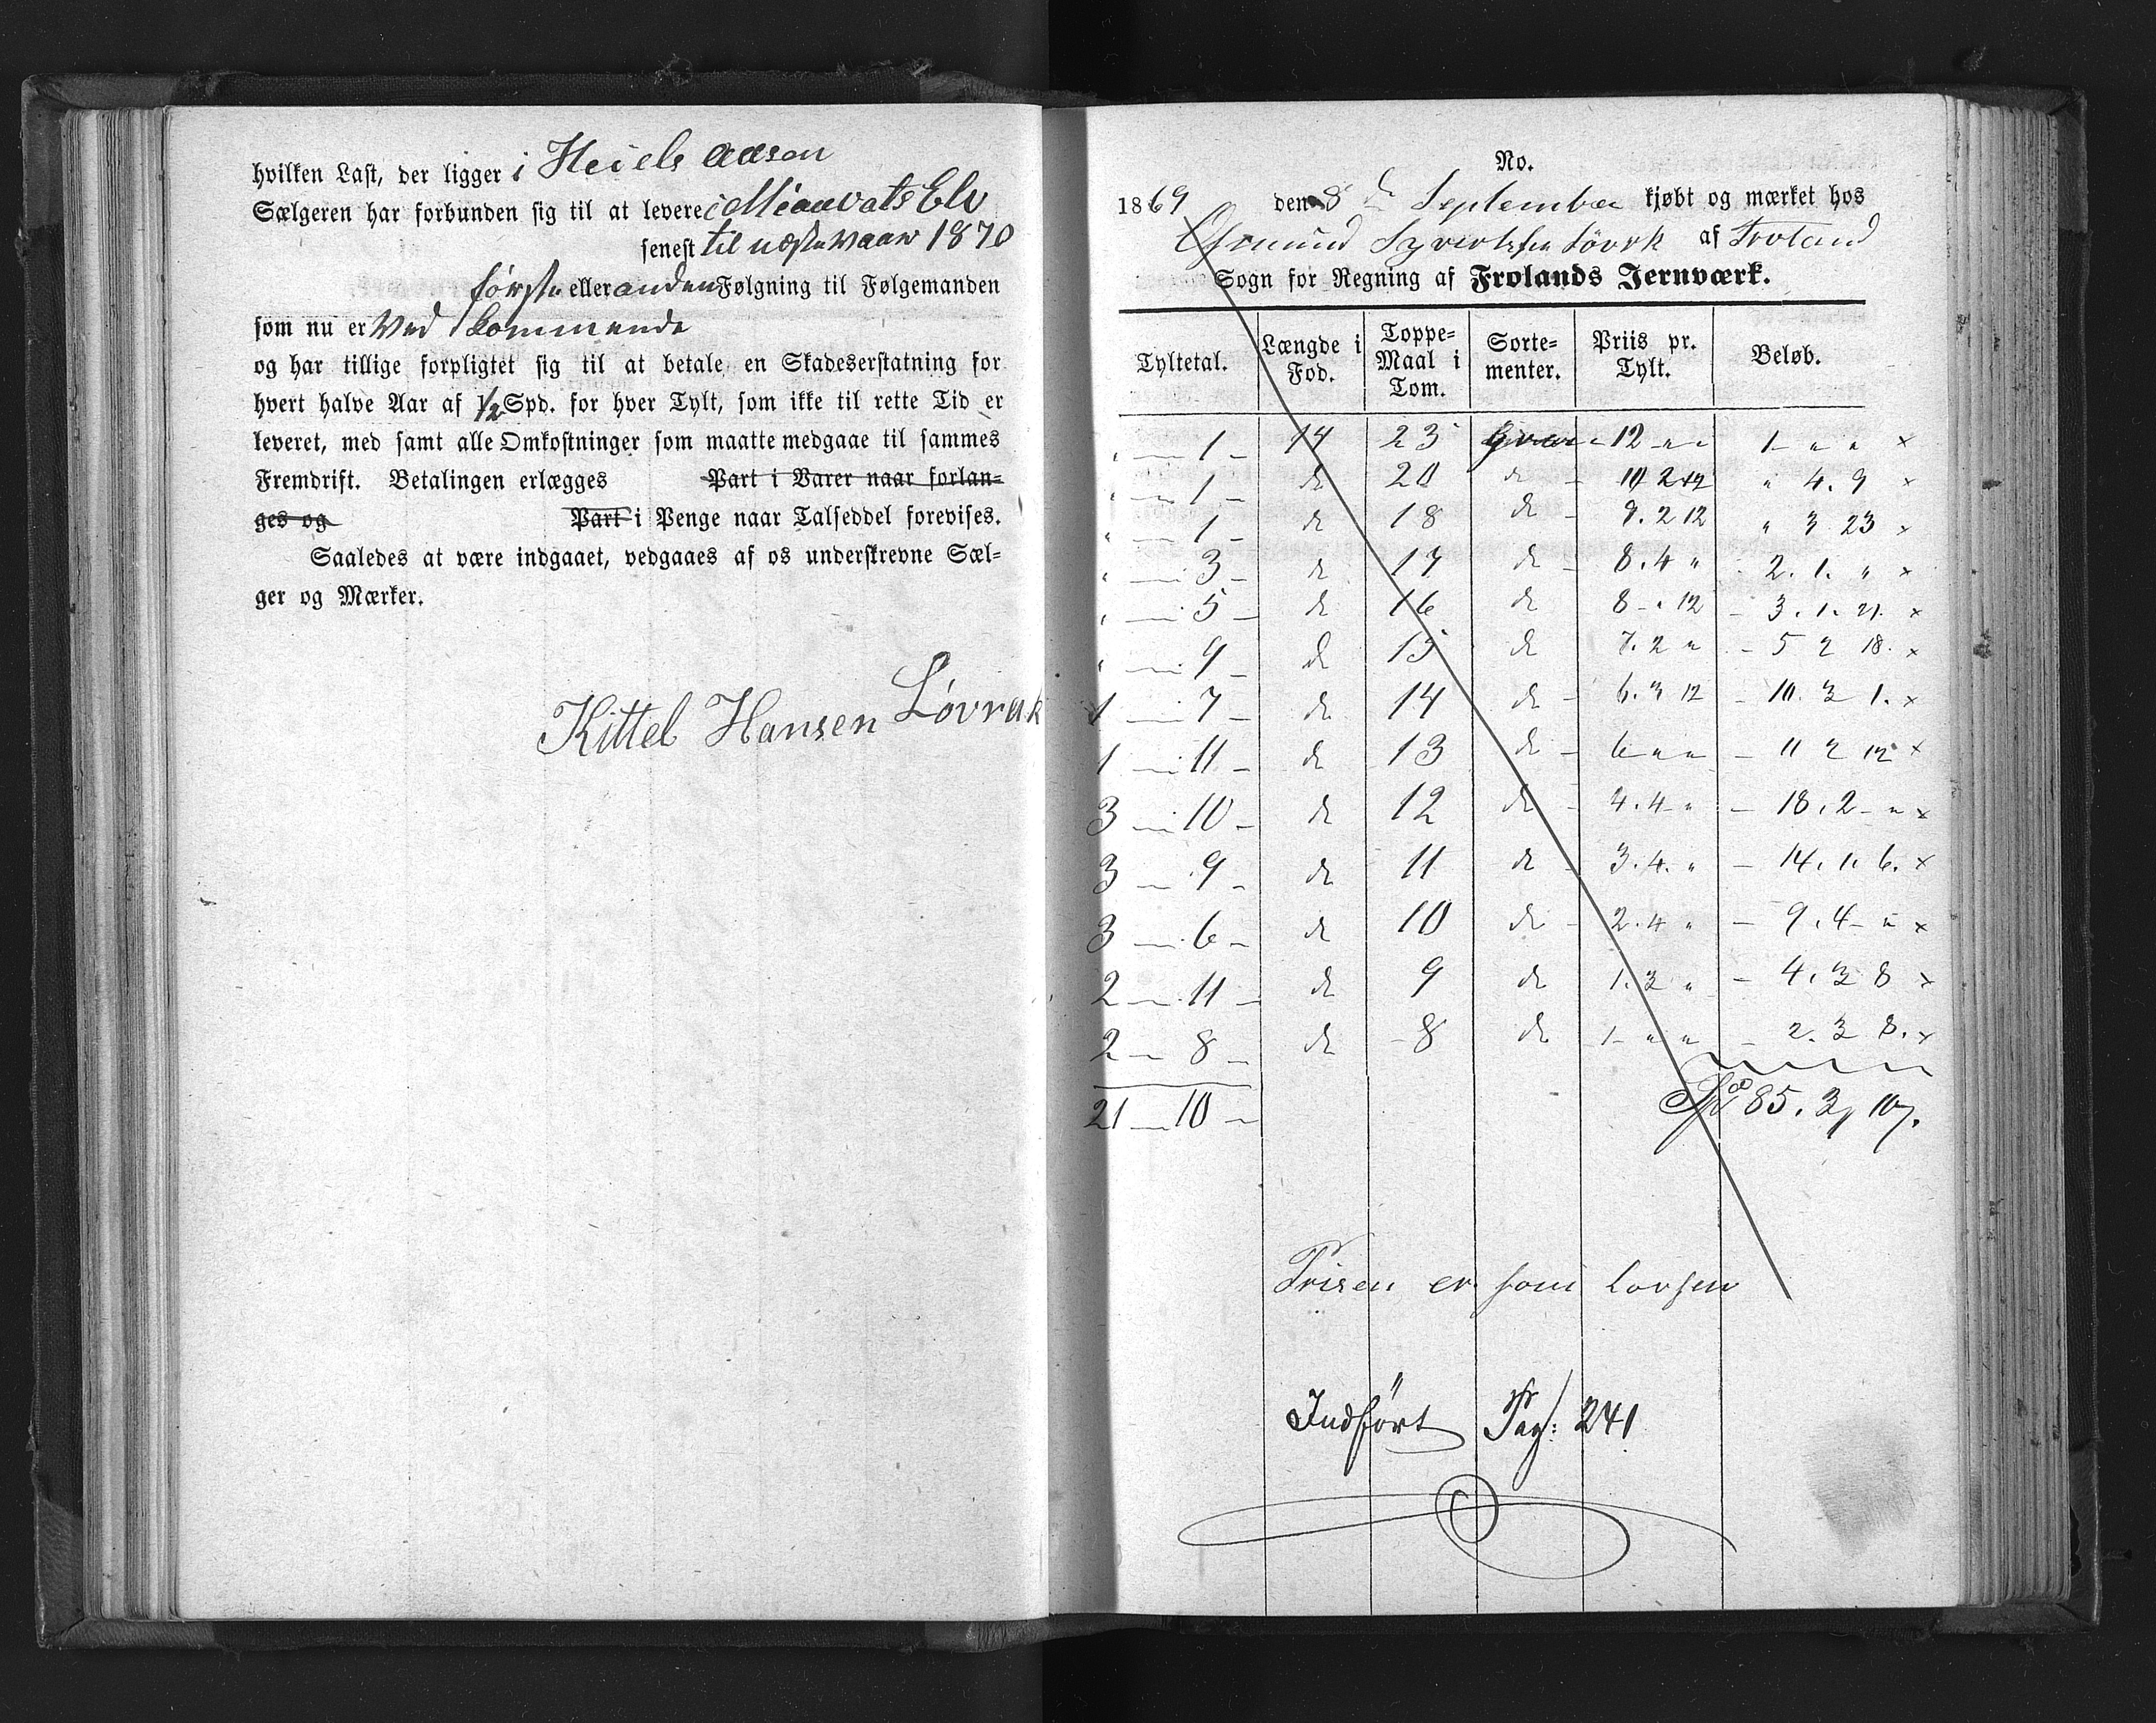 hvilken Last, der ligger i Heiels Aasen
Sælgeren har forbunden sig til at levere i Miauvats Elv
senest til næste Vaar 1870
første eller anden Følgning til Følgemanden
som nu er Ved kommende
og har tillige forpligtet sig til at betale en Skadeserstatning for
hvert halve Aar af 1/2 Spd. for hver Tylt, som ikke til rette Tid er
leveret, med samt alle Omkostninger som maatte medgaae til sammes
Fremdrift. Betalingen erlægges Part i Varer naar forlan-
ges og Part i Penge naar Talseddel forevises.
Saaledes at være indgaaet, vedgaaes af os underskrevne Sæl-
ger og Mærker.
Kittel Hansen Løvrak
No.
1869 den 8 September kjøbt og mærket hos
Osmund Syvertsen Løvrk af Froland
Sogn for Regning af Frolands Jernværk.
Tyltetal. Længde i Fod. Toppe-Maal i Tom. Sorte-menter. Priis pr. Tylt. Beløb.
" — 1 — 14 23 Gran - 12 " " 1 - " " ×
" — 1 — do 20 do - 10 2 12 " 4. 9 ×
" — 1 — do 18 do - 9. 2 12 " 3 23 ×
" — 3 — do 17 do - 8. 4 " 2. 1. " ×
" — 5 — do 16 do 8 - " 12 - 3. 1. 21. ×
" — 9 — do 15 do 7. 2 " - 5 2 18. ×
1 — 7 — do 14 do - 6. 3 12 - 10. 3 1. ×
1 — 11 — do 13 do - 6 " " - 11 2 12 ×
3 — 10 — do 12 do - 4. 4 " - 18. 2 - " ×
3 — 9 — do 11 do - 3. 4. " - 14. 1. 6. ×
3 — 6 — do 10 do - 2. 4 " - 9. 4 - " ×
2 — 11 — do 9 do 1. 3 " - 4. 3 8 ×
2 — 8 — do 8 do 1 - " " - 2. 3 8. ×
21 — 10 — Spd 85. 3, 10.
Prisen er som
Indført Pag: 241